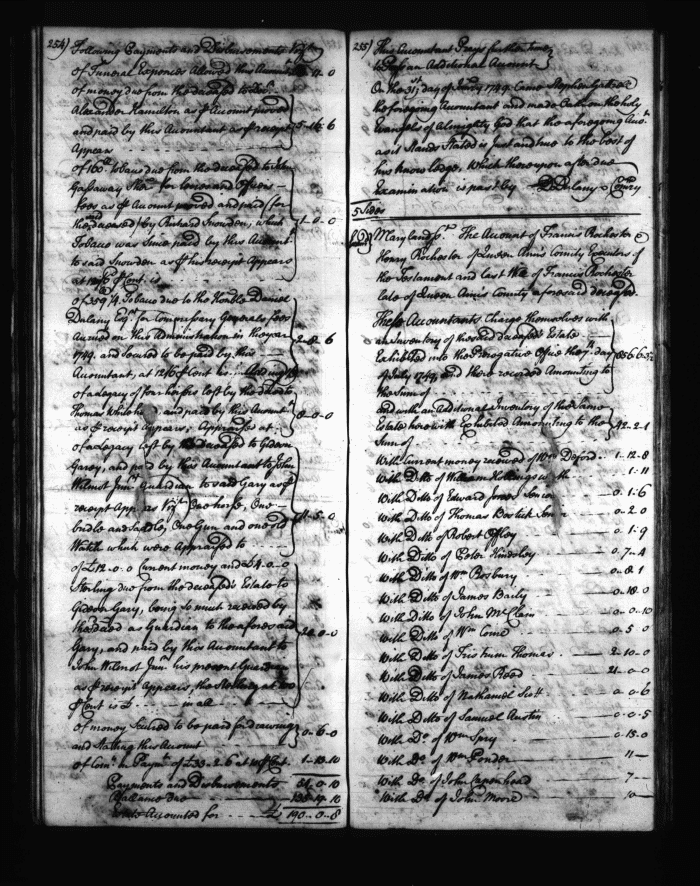 254) Following Payments and Disbursements Vizt
of Funeral Expences Allowed this Accountt
of money due from the deceased to Doc.
Alexander Hamilton as Accot proved
and paid by this Accountant as receipt 5-16-6
Appears
of 160 tobacco due from the deceased to
Gassaway for and Officers
Fees as Accout proved and paid (for
the deceased) by Richard Snowden, which 1-0-0
Tobacco was Since paid by this Accountt
to said Snowden as his receipt Appears
at Cent. is
of 389 1/4 Tobacco due to the Honble Daniel
Dulany Esqr for Commissary Generals fees
Accrued on this Administration in the year 2-8-6
1749. and secured to be paid by this
Accountant, at 12/6 Cent is
of a Legacy of four heifers left by the
Thomas and paid by this Accountt 8-0-0
as receipt Appears, Appraised at
of a Legacy left by the deceased to Gideon
Garey, and paid by this Accountant to John
Wilmot Junr Guardian to said Gary as
receipt Appears Vizt One horse, One
bridle and Saddle, One Gun and one old -5-0
Watch which were Appraised to
of £12.0.0 Current money and £4-0-0
Sterling due from the deceased's Estate to
Gideon Gary, being so much received by
the deced as Guardian to the aforesaid
Gary, and paid by this Accountant to 20-0-0
John Wilmot Junr his present Guardian
as receipt Appears, the Sterling at
Cent is £ in all
of money Secured to be paid for drawing 0-6-0
and Stating this Account
of Comn on Paymt of £33-2-6 at 10 Ct. 1-10-10
Payments and Disbursements 51-0-10
Ballance due
Accounted for £ 190-0-8
255) This Accountant Prays further time
to Pass an Additional Account
On the 31st day of Janry 1749. Came Stephen
the foregoing Accountant and made Oath on the holy
Evangels of Almighty God that the aforegoing Acct.
as it Stands Stated is just and true to the best of
his knowledge. Which thereupon after due
Examination is past by D Dulany Comry
5 Sides
Maryland Sct. The Account of Francis Rochester &
Henry Rochester of Queen Ann's County Executors of
the Testament and last Will of Francis Rochester
late of Queen Ann's County aforesaid deceased.
These Accountants Charge themselves with
an Inventory of the said deceased's Estate
Exhibited into the Prerogative Office the 7th day
of July 1749, and there recorded Amounting to
the Sum of
and with an Additional Inventory of the Same
Estate herewith Exhibited Amounting to the 42-2-1
Sum of
With Current money received of Wm Deford 1-12-8
With Ditto of William Hollingsworth 1-11
With Ditto of Edward Jones Senior 0.1.6
With Ditto of Thomas Bostick Senr 0-2.0
With Ditto of Robert Offley 0-1-9
With Ditto of Peter Hindesley 0-7-4
With Ditto of Wm Rosbury 0-8-1
With Ditto of James Baily 0-18.0
With Ditto of John McClain 0-0-10
With Ditto of Wm Comd 0.5.0
With Ditto of Tristrum Thomas 2-10.0
With Ditto of James Reed 21-0-0
With Ditto of Nathaniel Scott 0.0.6
With Ditto of Samuel Austin 0-0.5
With Do of Wm Spry 0-15.0
With Do of Wm Ponder 11-
With Do of John Capenhead 7-
With Do of John Moore 10-